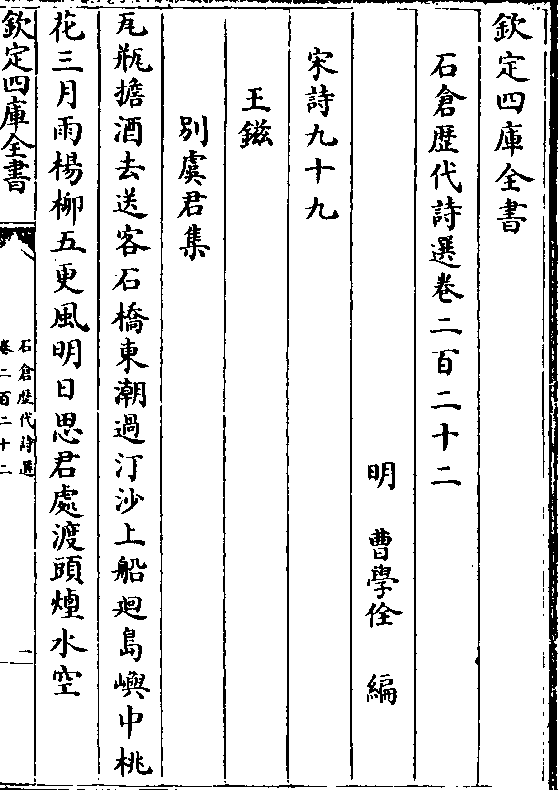 欽定四庫全書
石倉歴代詩選卷二百二十二
明　曹學佺　編
宋詩九十九
王鎡
别虞君集
瓦瓶擔酒去送客石橋東潮過汀沙上船廻島嶼中桃
花三月雨楊柳五更風明日思君處渡頭煙水空
欽定四庫全書
石倉歴代詩選
卷二百二十二
一